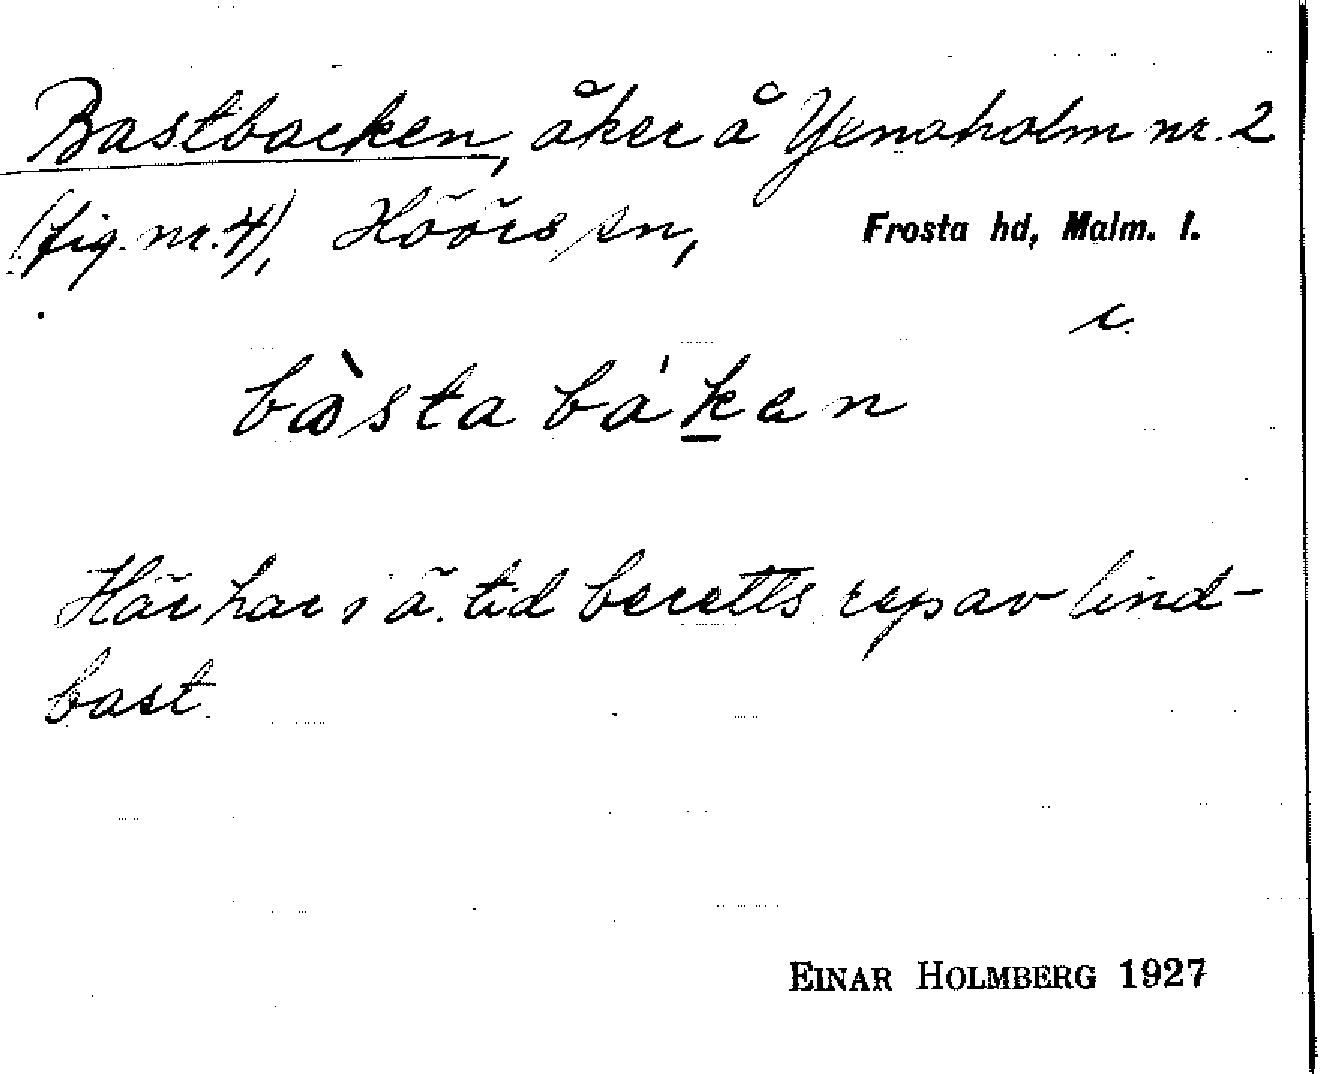 Bastbacken, åker å Yxnaholm nr. 2
(fig. nr. 4), Höörs sn, Frosta hd, Malm. l.
c
bàsta báken
Här har i ä. tid beretts rep av lind-
bast.
EINAR HOLMBERG 1927